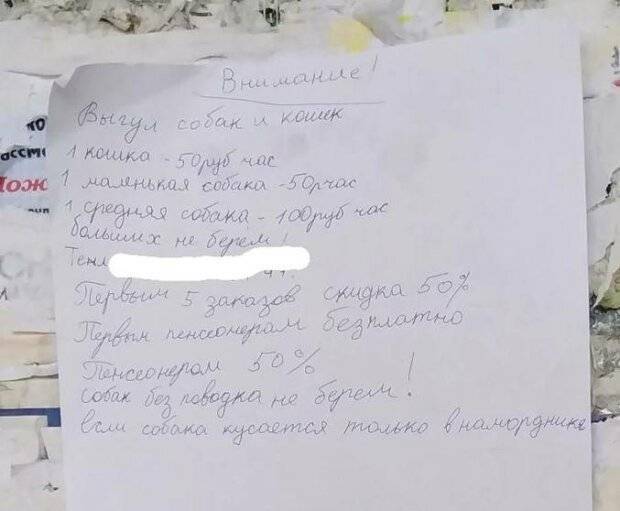 Внимание!
Выгул собак и кошек
1 кошка - 50руб час
1 маленькая собака - 50рчас
1 средняя собака - 100руб час
больших не берем!
Первым 5 заказов скидка 50%
Первым пенсеонерам безплатно
Пенсеонерам 50%
собак без поводка не берем!
если собака кусается только внаморднике
ко
ессм
Мож